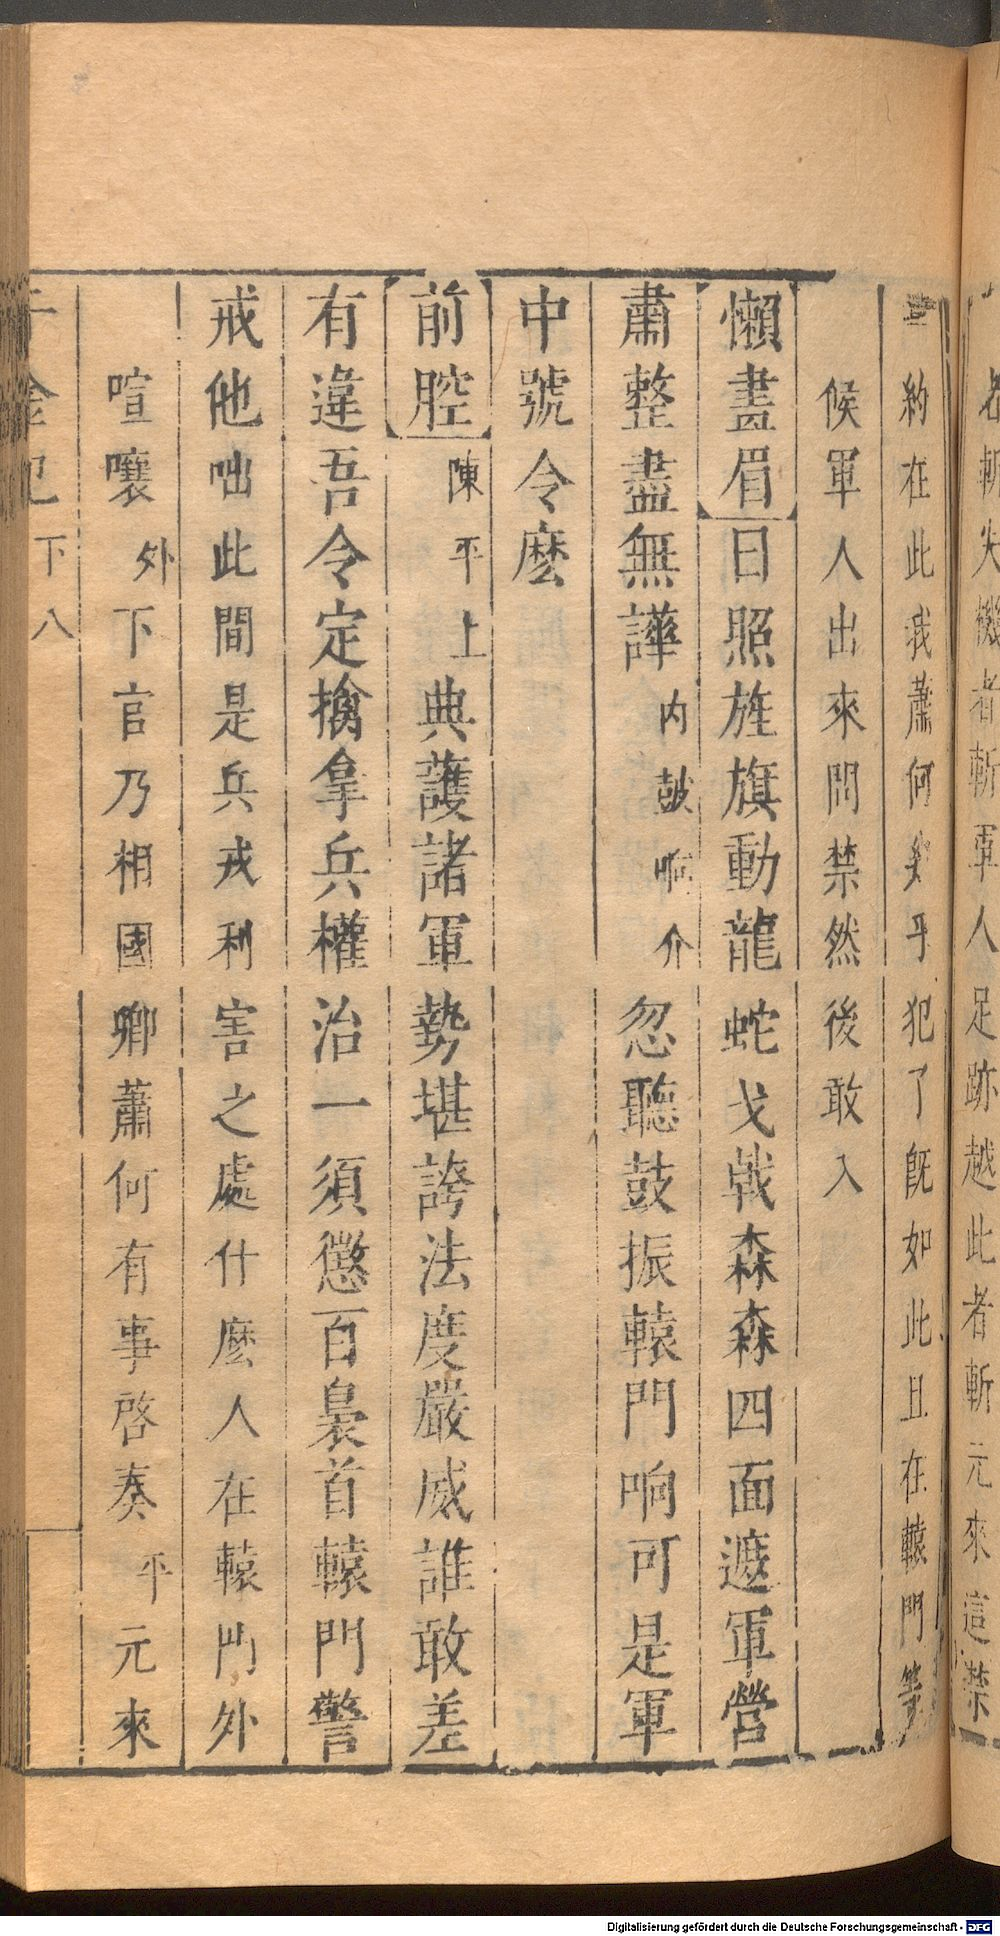 者斬失機者斬軍人足跡越此者斬元來這禁
約在此我蕭何幾乎犯了旣如此且在轅門等
候軍人出來問禁然後敢入
懶畫眉日照旌旗動龍蛇戈戟森森四面遮軍營
肅整盡無譁内鼓响介忽聽鼓振轅門响可是軍
中號令麽
前腔陳平上典護諸軍勢堪誇法度嚴威誰敢差
有違吾令定擒拿兵權治一須懲百梟首轅門警
戒他咄此間是兵戎利害之處什麽人在轅門外
喧嚷外下官乃相國卿蕭何有事啓奏平元來
千金記 下 八
Digitalisierung gefördert durch die Deutsche Forschungsgemeinschaft - DFG